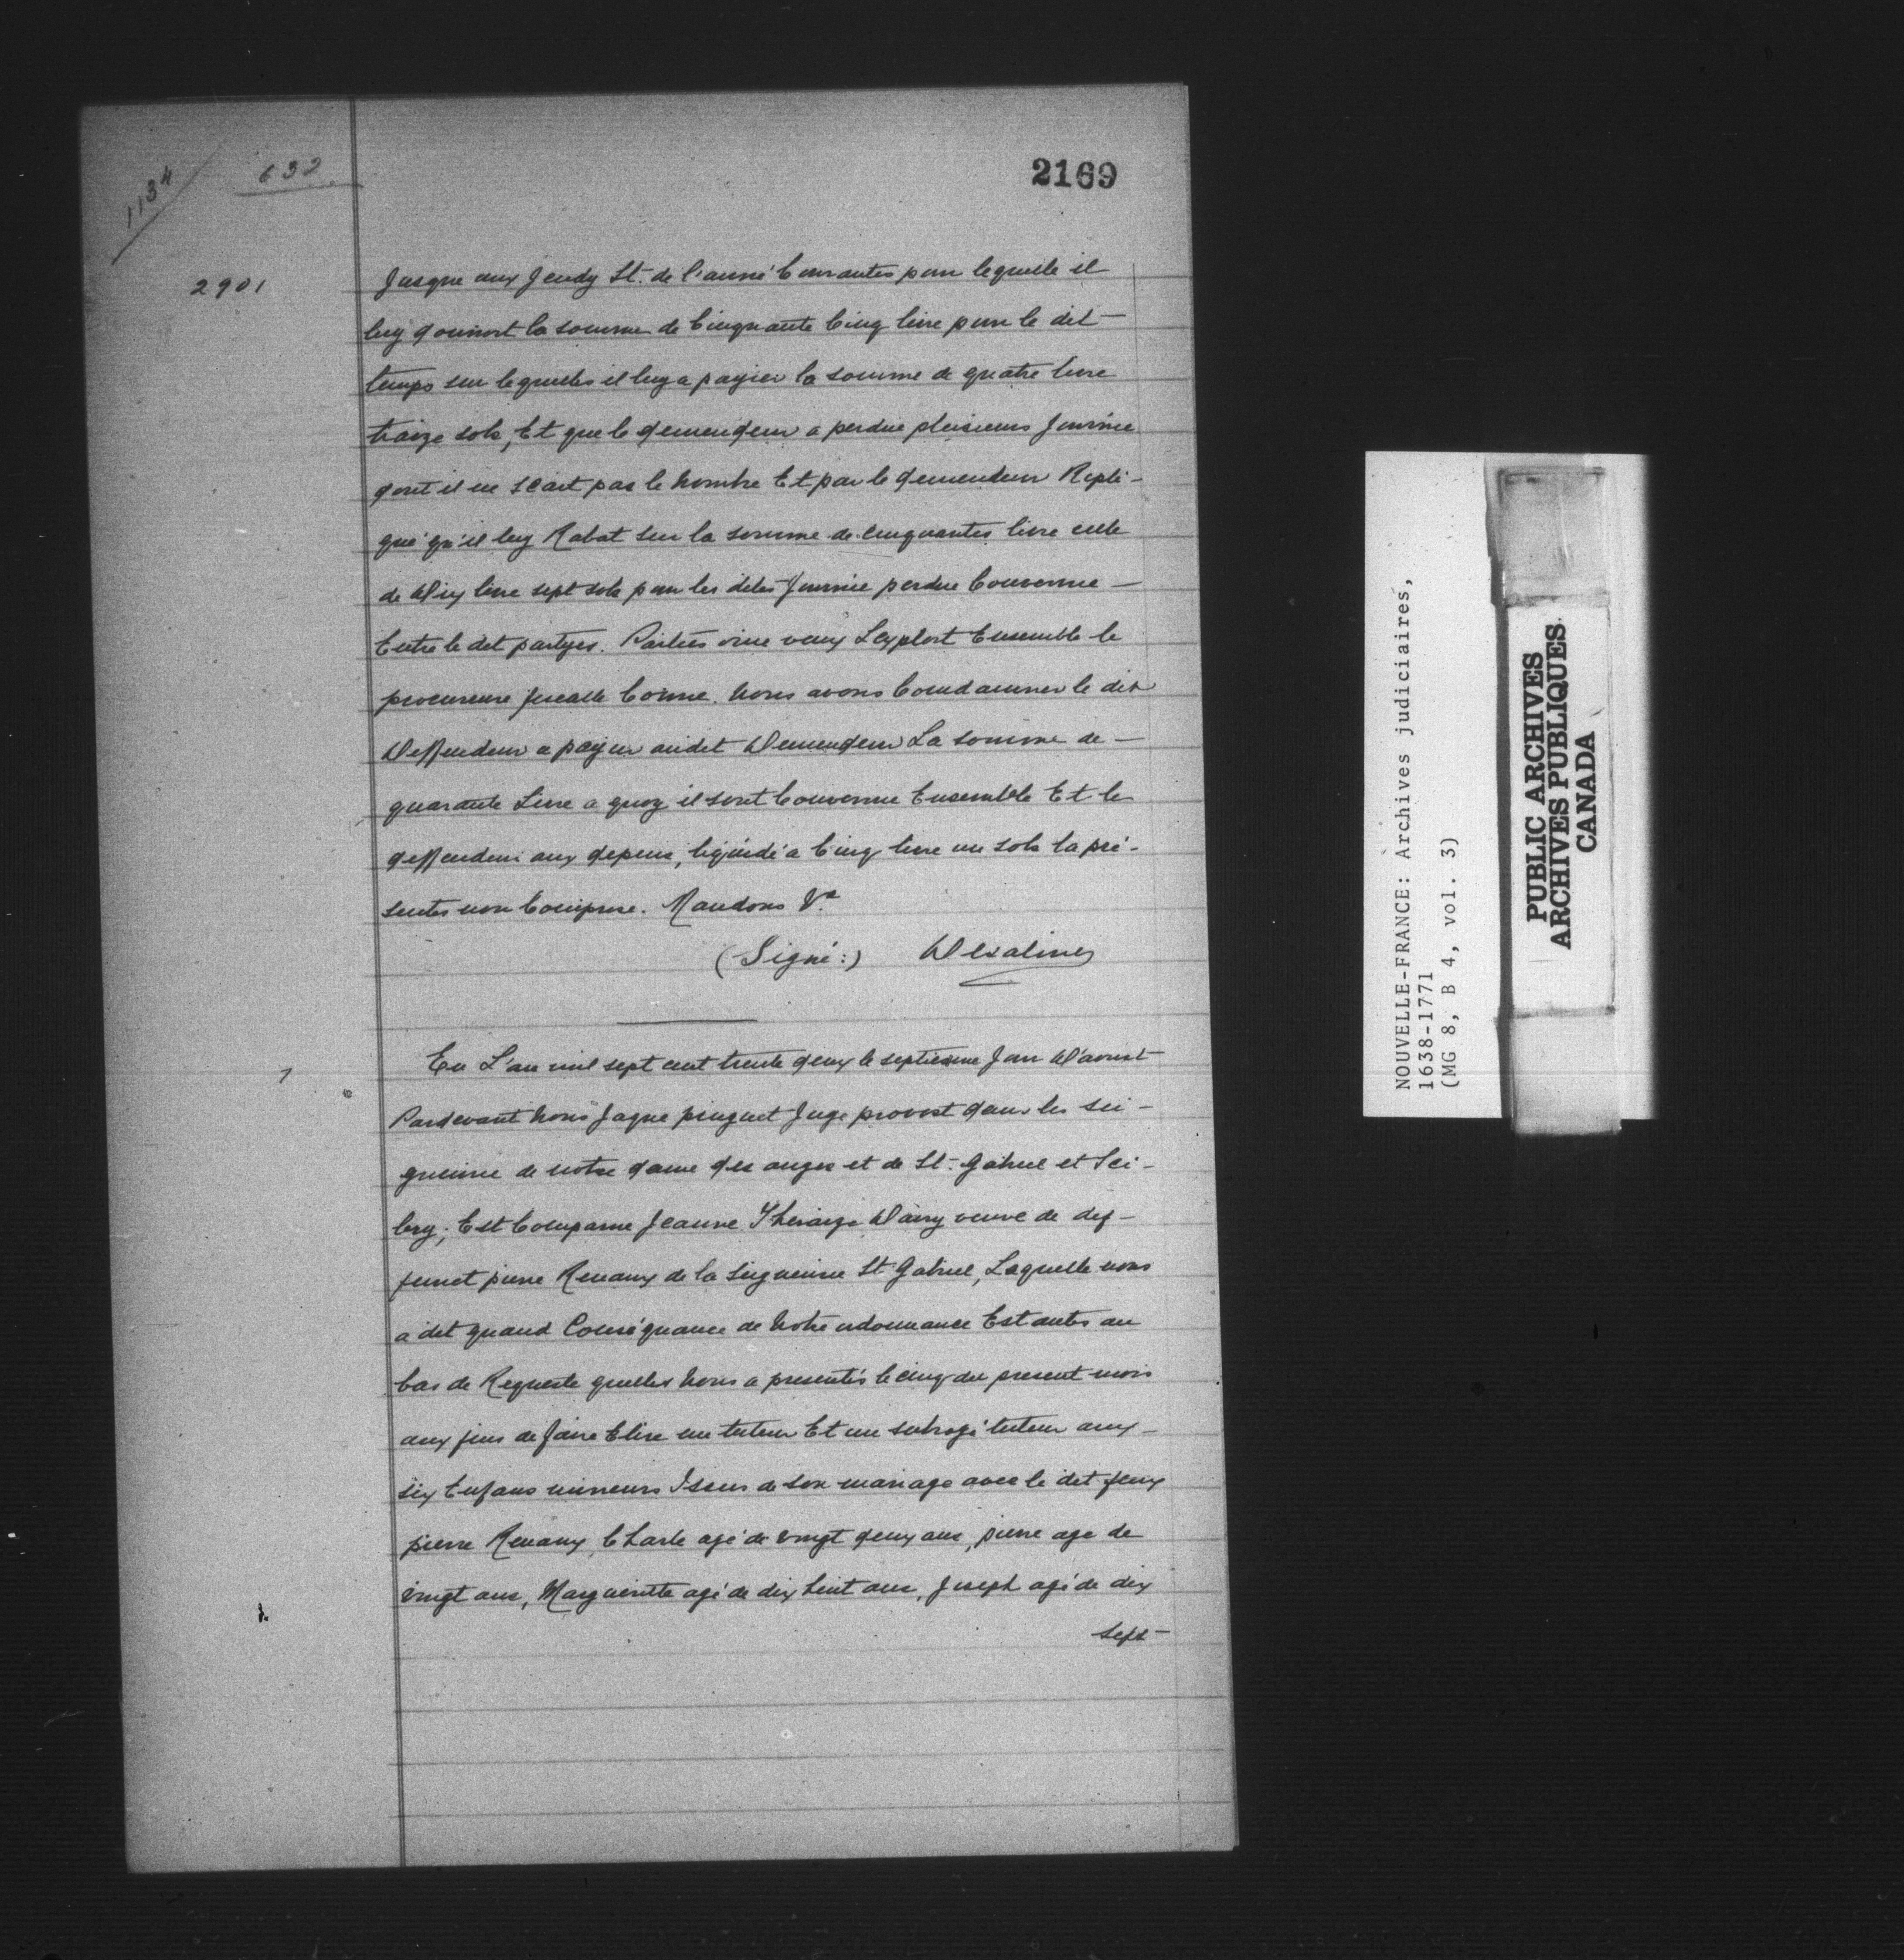 1134
632
2169
2901
Jusque aux Jeudy St. de l'anné Courantes pour lequelle il
luy donnort la somme de Cinquante Cinq livre pour le dit
temps sur lequelles il luy a payier la somme de quatre livre
traize sols, Et que le demendeur a perdue pluisieurs Journée
dont il ne scait pas le nombre Et par le demendeur Repli-
qué qu'il luy Rabat sur la somme de cinquantes livre celle
de Dix livre sept sols pour les dites Journée perdue Convenue
Entre le dit partyes. Parties ouie veux L'exploit Ensemble le
procureure fiscalle Comme. Nous avons Condamner le dit
Deffendeur a payer audit Demendeur La somme de
quarante Livre a quoy il sont Convenue Ensemble Et le
deffendeur aux depens, liquidé a Cinq livre un sols la pré-
sentes non Comprise. Mandons &a
(Signé:) Desaline
En L'an mil sept cent trente deux le septiesme Jour D'aoust
Pardevant Nous Jaque pinguet Juge provost dans les sei-
gneurie de notre dame des anges et de St. Gabriel et Sci-
lery; Est Comparue Jeanne Theraize Davy veuve de def-
funct pierre Renaux de la Seigneurie St Gabriel, Laquelle nous
a dit quand Conséquance de Notre ordonnance Estantes au
bas de Requeste quelles Nous a presentés le cinq du present mois
aux fins de faire Elire un tuteur Et un subrogé tuteur aux
six Enfans mineurs Issus de son mariage avec le dit feux
pierre Renaux, Charle agé de vingt deux ans, pierre age de
vingt ans, Margueritte agé de dix huit ans, Joseph agé de dix
sept
NOUVELLE-FRANCE: Archives judiciaires,
1638-1771
(MG 8, B 4, vol. 3)
PUBLIC ARCHIVES
ARCHIVES PUBLIQUES
CANADA